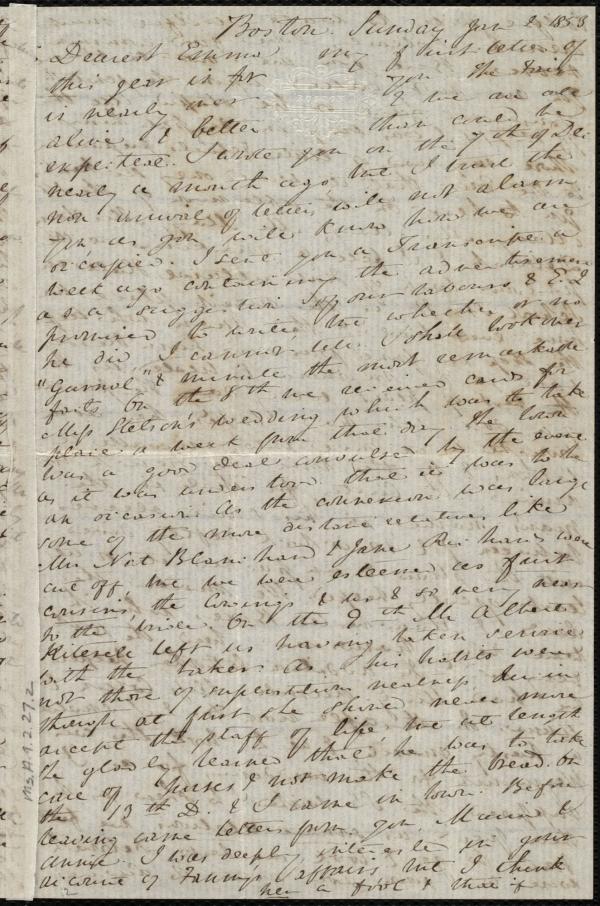 Boston. Sunday Jan 2 1853
Dearest Emma my first letter of
this year is for you. The
is nearly over & we are all
alive & better than could be
expected. I wrote you on the 7th of Dec
nearly a month ago but I trust the
non arrival of letters will not alarm
you as you will know how we are
occupied. I sent you a Transcript a
week ago containing the advertisement
as a suggestion of your labours & E. Q.
promised to write but whether or no
he did I cannot tell. I shall look over
"Journal" & minute the most remarkable
facts. On the 8th we received cards for
Miss Stetson's wedding which was to take
place a week from that day. The town
was a good deal convulsed by the event
as it was understood that it was to be
an occasion. As the connexion was large
some of the more distant relatives like
Mrs Nat Blanchard & Jane Richards were
cut off, but we were esteemed as first
cousins, the Cowings & us & so very near
to the bride. On the 9th Mr Albert
left us having taken service
with the bakers. As his habits were
not those of superstitious neatness
though at first she should never more
accept the staff of life, but at length
she gladly learned that he was to take
care of horses & not make the bread. On
the 13th D. & I came in town. Before
leaving came letters from you, Mama &
Annie. I was deeply interested in your
account of Fanny's affairs but I think
her a fool & that if
Ms.A.9.2.27.2